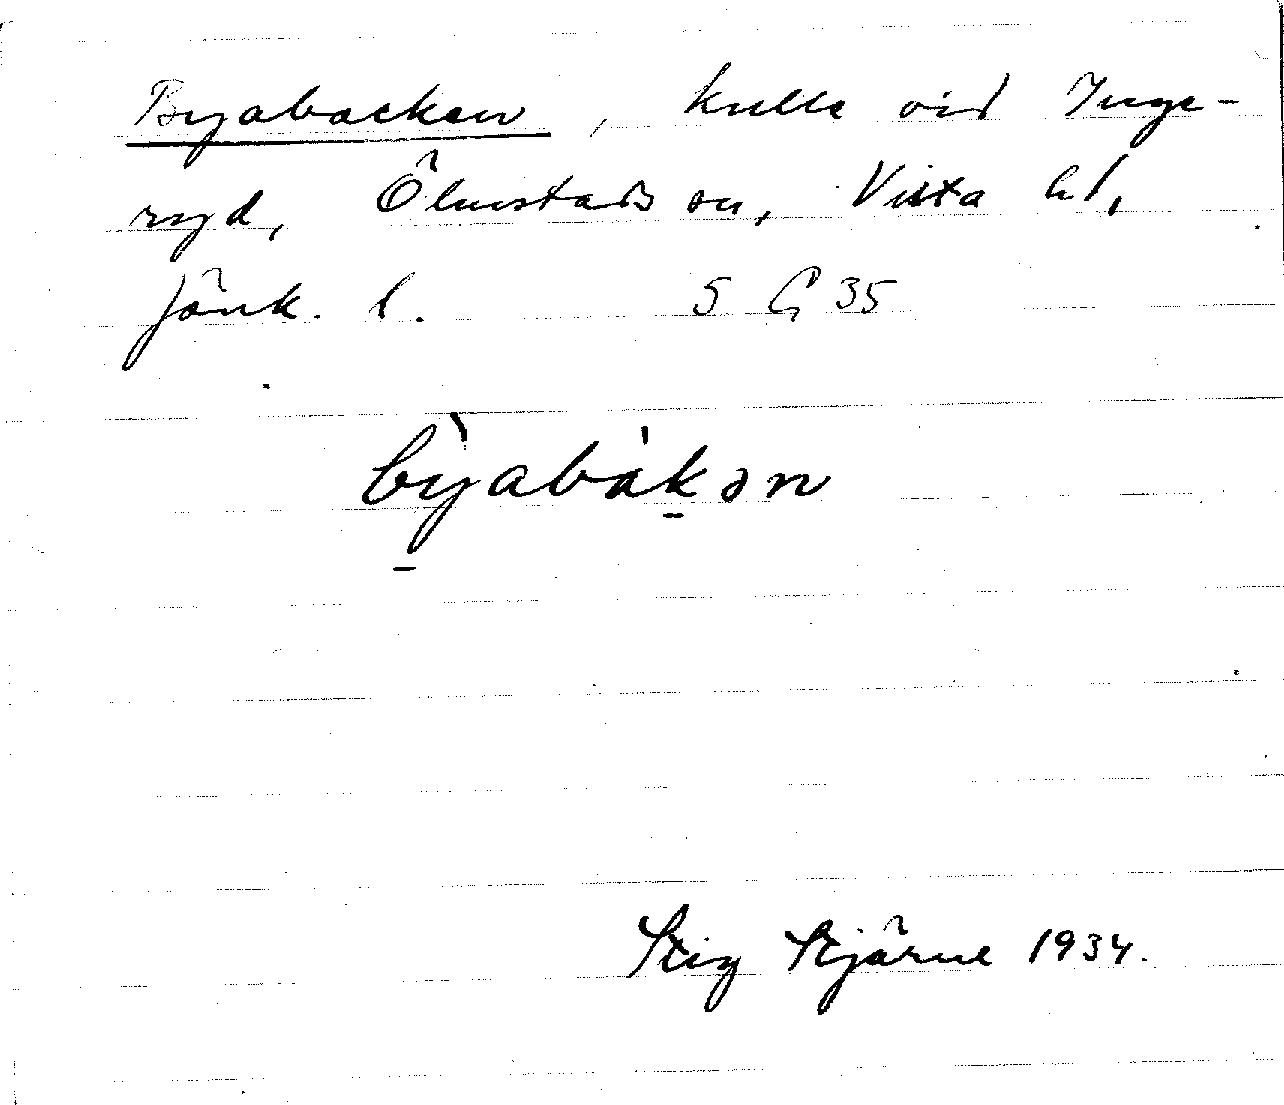 Byabacken, kulle vid Inge-
ryd, Ölmstads sn, Vista hd,
Jönk. l. 5 G 35
bỳabàkən
Stig Stjärne 1934.